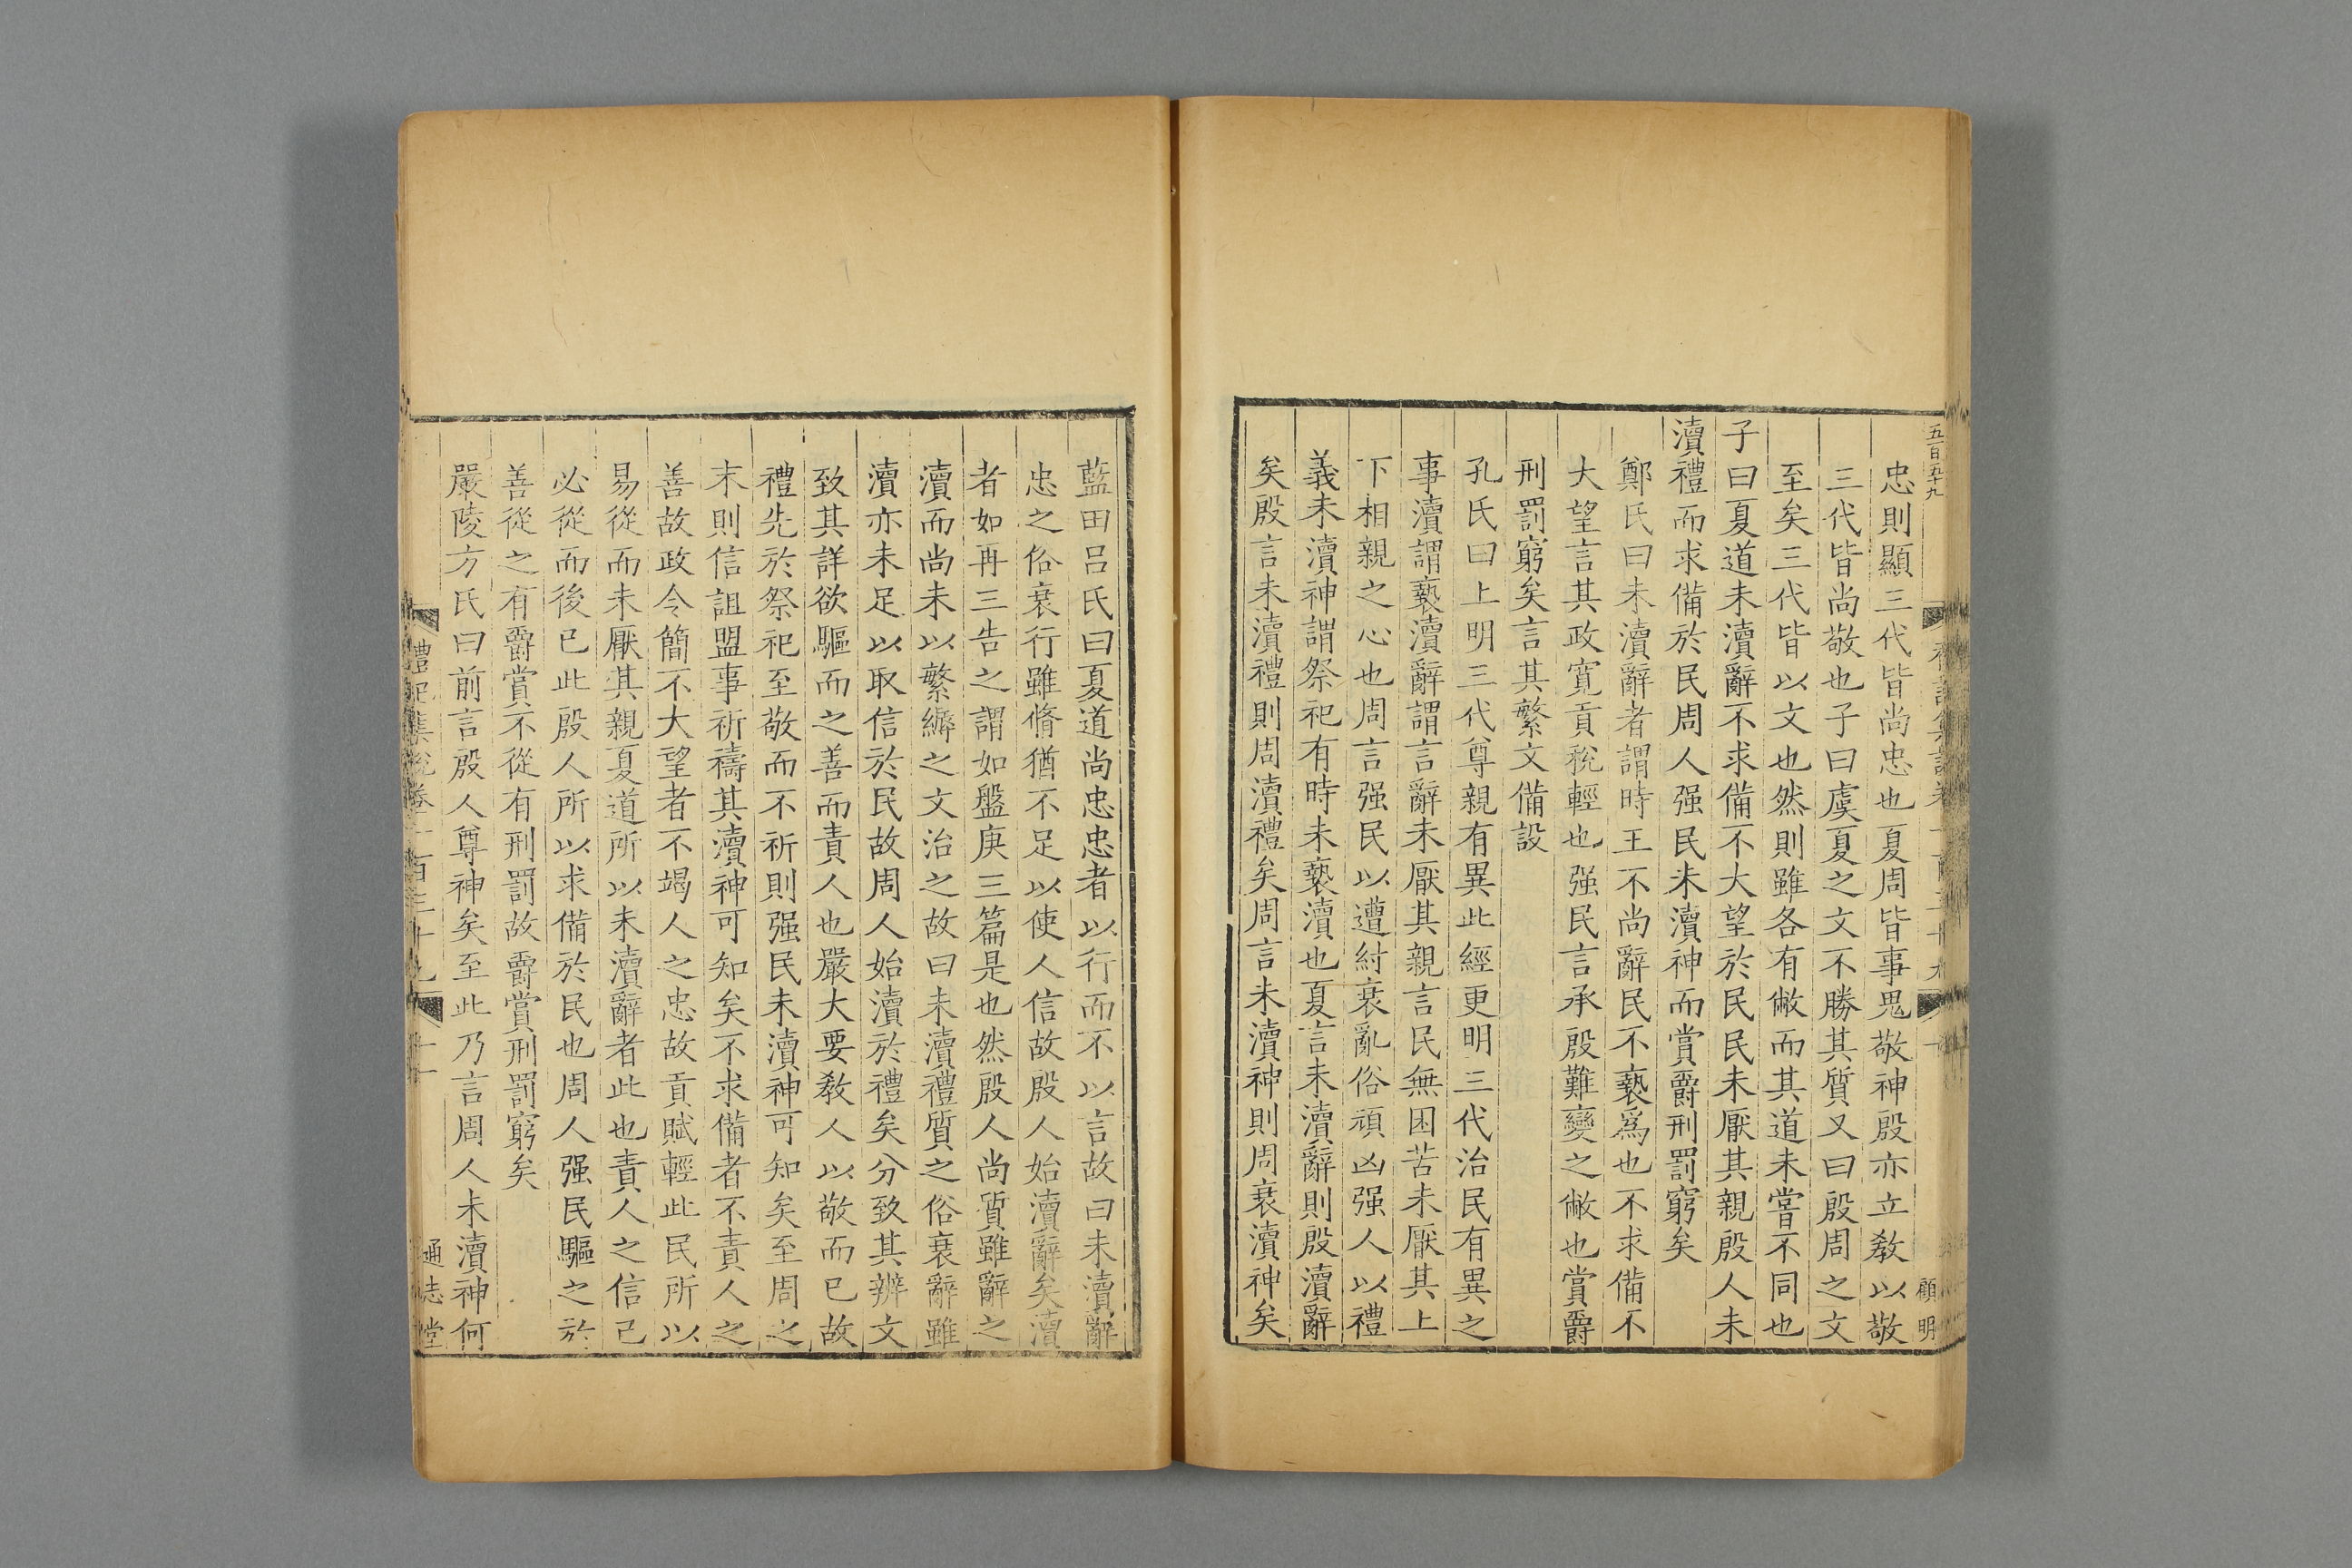 五百五十九
忠則顯三代皆尚忠也夏周皆事鬼敬神殷亦立教以敬
三代皆尚敬也子曰虞夏之文不勝其質又曰殷周之文
至矣三代皆以文也然則雖各有敝而其道未嘗不同也
子曰夏道未瀆辭不求備不大望於民民未厭其親殷人未
瀆禮而求備於民周人强民未瀆神而賞爵刑罰窮矣
鄭氏曰未瀆辭者謂時王不尚辭民不褻爲也不求備不
大望言其政寬貢稅輕也强民言承殷難變之敝也賞爵
刑罰窮矣言其繁文備設
孔氏曰上明三代尊親有異此經更明三代治民有異之
事瀆謂褻瀆辭謂言辭未厭其親言民無困苦未厭其上
下相親之心也周言强民以遭紂衰亂俗頑凶强人以禮
義未瀆神謂祭祀有時未褻瀆也夏言未瀆辭則殷瀆辭
矣殷言未瀆禮則周瀆禮矣周言未瀆神則周衰瀆神矣
顧明
藍田呂氏曰夏道尚忠忠者以行而不以言故曰未瀆辭
忠之俗衰行雖脩猶不足以使人信故殷人始瀆辭矣瀆
者如再三告之謂如盤庚三篇是也然殷人尚質雖辭之
瀆而尚未以繁縟之文治之故曰未瀆禮質之俗衰辭雖
瀆亦未足以取信於民故周人始瀆於禮矣分致其辨文
致其詳欲驅而之善而責人也嚴大要教人以敬而已故
禮先於祭祀至敬而不祈則强民未瀆神可知矣至周之
末則信詛盟事祈禱其瀆神可知矣不求備者不責人之
善故政令簡不大望者不竭人之忠故貢賦輕此民所以
易從而未厭其親夏道所以未瀆辭者此也責人之信己
必從而後已此殷人所以求備於民也周人强民驅之於
善從之有爵賞不從有刑罰故爵賞刑罰窮矣
嚴陵方氏曰前言殷人尊神矣至此乃言周人未瀆神何
禮記集說卷一百三十九
十一
通志堂